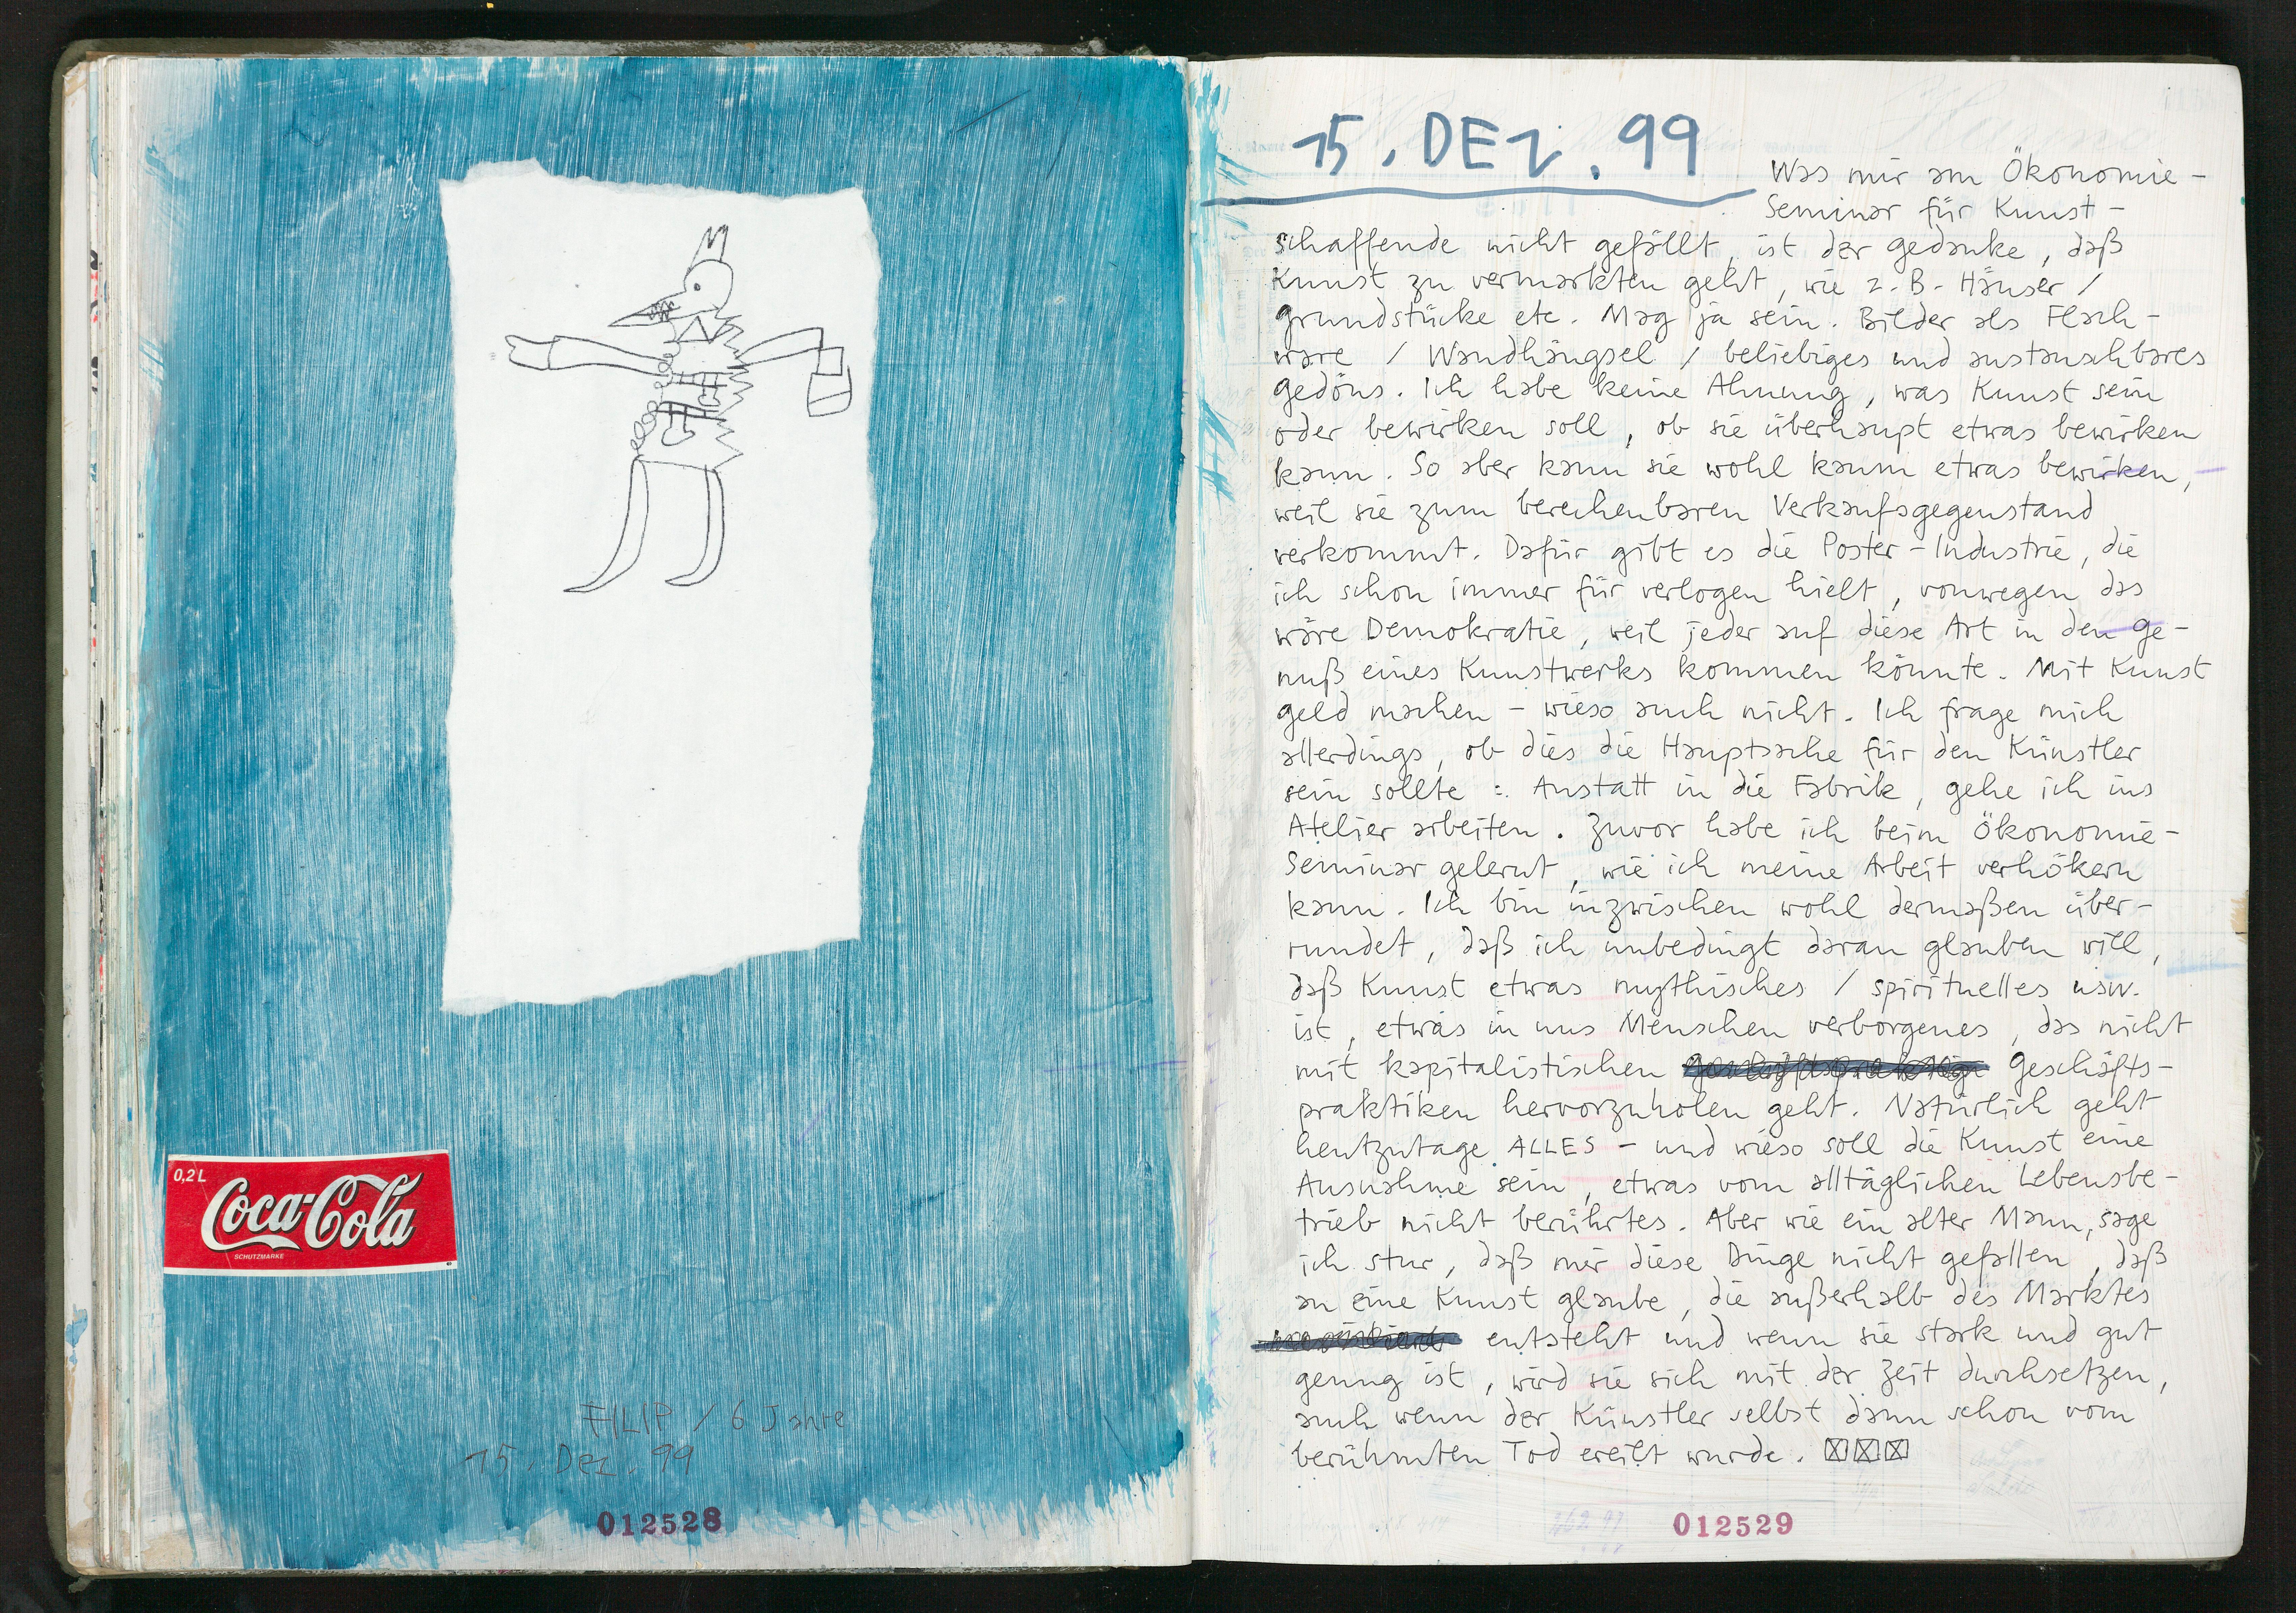 0,2 L
Coca-Cola
SCHUTZMARKE
FILIP / 6 Jahre
15. Dez. 99
012528
15. DEZ. 99
Was mir am Ökonomie-
Seminar für Kunst-
schaffende nicht gefällt, ist der gedanke, daß
Kunst zu vermarkten geht, wie z.B. Häuser /
grundstücke etc. Mag ja sein. Bilder als Flach-
ware / Wandhängsel / beliebiges und austauschbares
gedöns. Ich habe keine Ahnung, was Kunst sein
oder bewirken soll, ob sie überhaupt etwas bewirken
kann. So aber kann sie wohl kaum etwas bewirken,
weil sie zum berechenbaren Verkaufsgegenstand
verkommt. Dafür gibt es die Poster-Industrie, die
ich schon immer für verlogen hielt, vonwegen das
wäre Demokratie, weil jeder auf diese Art in den ge-
nuß eines Kunstwerks kommen könnte. Mit Kunst
geld machen - wieso auch nicht. Ich frage mich
allerdings, ob dies die Hauptsache für den Künstler
sein sollte :. Anstatt in die Fabrik, gehe ich ins
Atelier arbeiten. Zuvor habe ich beim Ökonomie-
Seminar gelernt, wie ich meine Arbeit verhökern
kann. Ich bin inzwischen wohl dermaßen über-
rundet, daß ich unbedingt daran glauben will,
daß Kunst etwas mythisches / spirituelles usw.
ist, etwas in uns Menschen verborgenes, das nicht
mit kapitalistischen geschäfts-
praktiken hervorzuholen geht. Natürlich geht
heutzutage ALLES - und wieso soll die Kunst eine
Ausnahme sein, etwas vom alltäglichen Lebensbe-
trieb nicht berührtes. Aber wie ein alter Mann, sage
ich stur, daß mir diese Dinge nicht gefallen, daß
an eine Kunst glaube, die außerhalb des Marktes
entsteht und wenn sie stark und gut
genug ist, wird sie sich mit der Zeit durchsetzen,
auch wenn der Künstler selbst dann schon vom
berühmten Tod ereilt wurde.
012529